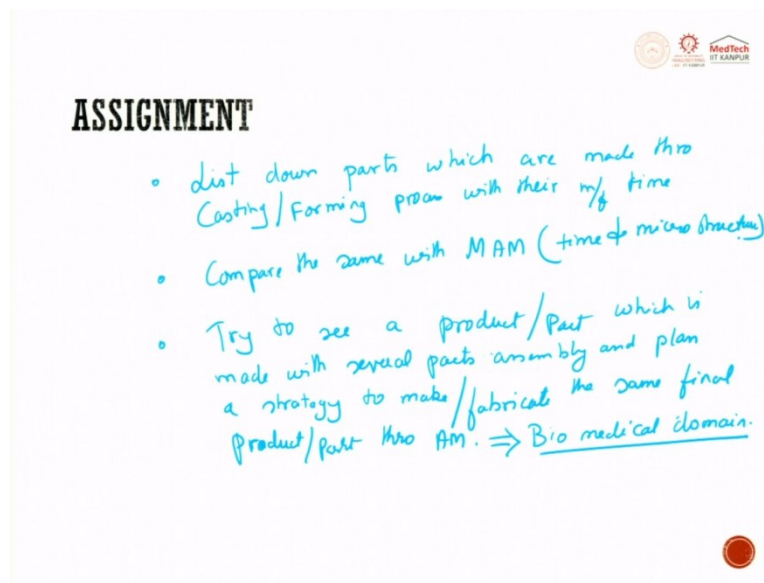 MedTech
IIT KANPUR
ASSIGNMENT
• List down parts which are made thro
Casting/Forming process with their m/f time
• Compare the same with MAM (time & micro structure)
• Try to see a product/Part which is
made with several parts assembly and plan
a strategy to make/fabricate the same final
product/part thro AM. ⇒ Bio medical domain.